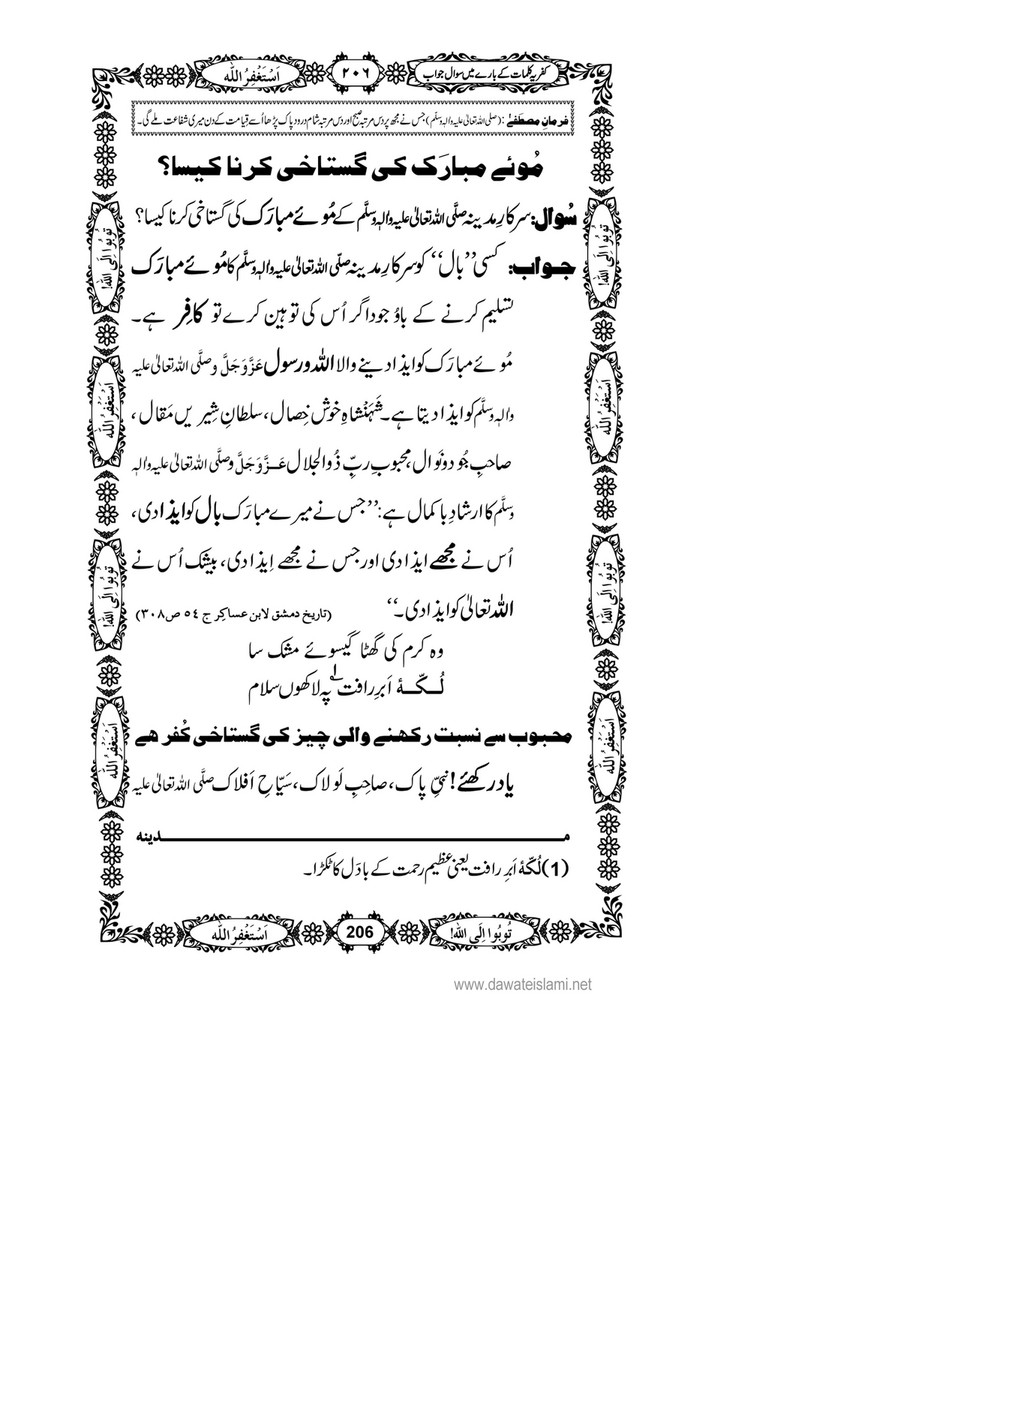 کفریہ کلمات کے بارے میں سوال جواب
٢٠٦
اَسْتَغْفِرُاللّٰه
فرمانِ مصطفےٰ: (صلی اللہ تعالیٰ علیہ والہٖ وسلّم) جس نے مجھ پر دس مرتبہ صبح اور دس مرتبہ شام درود پاک پڑھا اُسے قیامت کے دن میری شفاعت ملے گی۔
مُوئے مبارَک کی گستاخی کرنا کیسا؟
سُوال: سرکارِ مدینہ صلَّی اللہ تعالیٰ علیہ واٰلہٖ وسلَّم کے مُوئے مبارَک کی گستاخی کرنا کیسا؟
جواب: کسی ’’بال‘‘ کو سرکارِ مدینہ صلَّی اللہ تعالیٰ علیہ واٰلہٖ وسلَّم کا مُوئے مبارَک
تسلیم کرنے کے باوُجود اگر اُس کی توہین کرے تو کافِر ہے۔
مُوئے مبارَک کو ایذا دینے والا اللہ و رسول عَزَّوَجَلَّ وصلَّی اللہ تعالیٰ علیہ
واٰلہٖ وسلَّم کو ایذا دیتا ہے۔ شَہَنْشاہِ خوش خِصال، سلطانِ شِیریں مَقال،
صاحبِ جُود و نَوال، محبوبِ ربِّ ذُوالجلال عَزَّوَجَلَّ وصلَّی اللہ تعالیٰ علیہ واٰلہٖ
وسلَّم کا ارشادِ با کمال ہے: ’’جس نے میرے مبارَک بال کو ایذا دی،
اُس نے مجھے ایذا دی اور جس نے مجھے اِیذا دی، بیشک اُس نے
اللہ تعالیٰ کو ایذا دی۔‘‘ (تاریخ دمشق لابن عساکِر ج ٥٤ ص ٣٠٨)
وہ کرم کی گھٹا گیسوئے مشک سا
لُکّۂ اَبرِ رافت ۱ پہ لاکھوں سلام
محبوب سے نسبت رکھنے والی چیز کی گستاخی کُفر ھے
یاد رکھئے! نبیِّ پاک، صاحِبِ لَولاک، سَیّاحِ اَفلاک صلَّی اللہ تعالیٰ علیہ
مدینہ
(1) لُکّۂ اَبرِ رافت یعنی عظیم رحمت کے بادَل کا ٹکڑا۔
تُوبُوا اِلَی اللّٰه!
206
اَسْتَغْفِرُاللّٰه
تُوبُوا اِلَی اللّٰه!
اَسْتَغْفِرُاللّٰه
تُوبُوا اِلَی اللّٰه!
اَسْتَغْفِرُاللّٰه
تُوبُوا اِلَی اللّٰه!
اَسْتَغْفِرُاللّٰه
تُوبُوا اِلَی اللّٰه!
اَسْتَغْفِرُاللّٰه
www.dawateislami.net